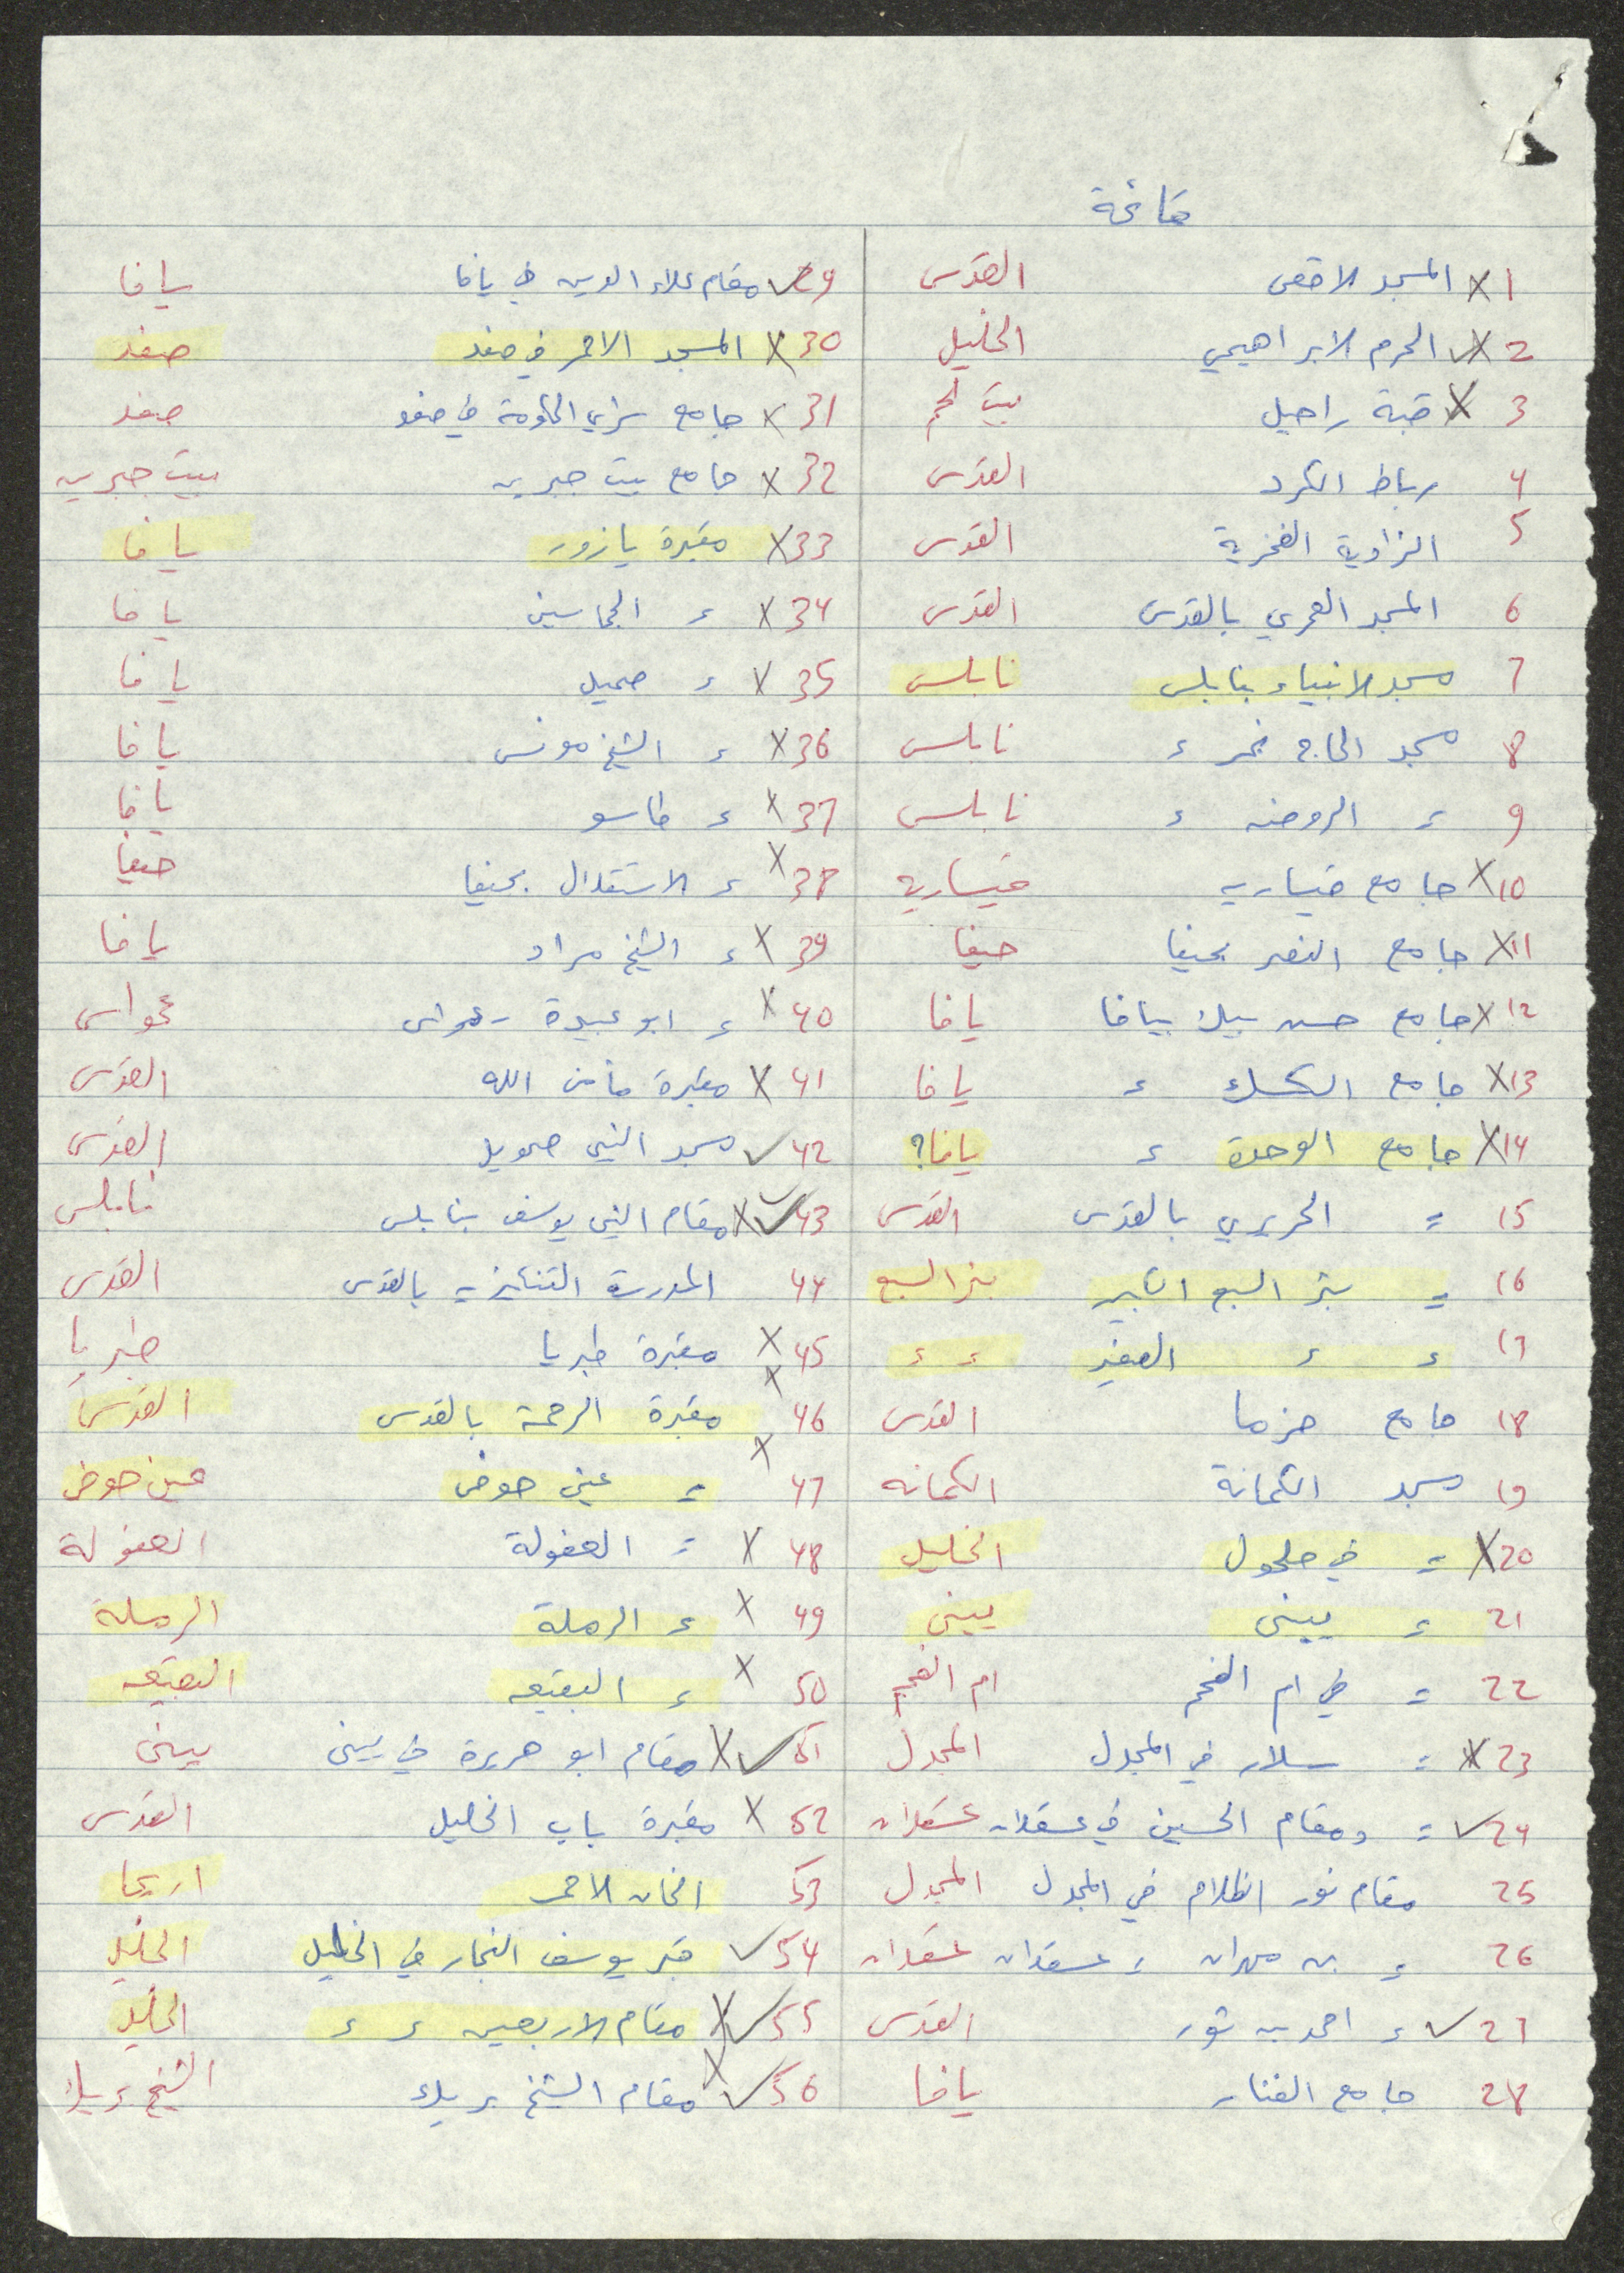 قائمة
1 X المسجد الاقصى القدس
2 X✓ الحرم الابراهيمي الخليل
3 X قبة راحيل بيت لحم
4 رباط الكرد القدس
5 الزاوية الفخرية القدس
6 المسجد العمري بالقدس القدس
7 مسجد الانبياء بنابلس نابلس
8 مسجد الحاج نمر ء نابلس
9 ء الروضه ء نابلس
10 X جامع قيساريه قيساريه
11 X جامع النصر بحيفا حيفا
12 X جامع حسن بيك بيافا يافا
13 X جامع السكسك ء يافا
14 X جامع الوحدة ء يافا؟
15 = الحريري بالقدس القدس
16 = بئر السبع الكبير بئر السبع
17 ء ء الصغير ء ء
18 جامع حزما القدس
19 مسجد الكمانة الكمانه
20 X = في حلحول الخليل
21 ء يبنى يبنى
22 = في ام الفحم ام الفحم
23 X = سلار في المجدل المجدل
24 ✓ = ومقام الحسين في عسقلان عسقلان
25 مقام نور الظلام في المجدل المجدل
26 ء بن مهران ء عسقلان عسقلان
27 ✓ ء احمد بن ثور القدس
28 جامع الفنار يافا
29 ✓ مقام علاء الدين في يافا يافا
30 X المسجد الاحمر في صفد صفد
31 X جامع سراي الحكومة في صفد صفد
32 X جامع بيت جبرين بيت جبرين
33 X مقبرة يازور يافا
34 X ء الجماسين يافا
35 X ء صميل يافا
36 X ء الشيخ مونس يافا
37 X ء طاسو يافا
38 X ء الاستقلال بحيفا حيفا
39 X ء الشيخ مراد يافا
40 X ء ابو عبيدة - عمواس عمواس
41 X مقبرة مأمن الله القدس
42 ✓ مسجد النبي صمويل القدس
43 ✓X مقام النبي يوسف بنابلس نابلس
44 المدرسة التنكيزية بالقدس القدس
45 X مقبرة طبريا طبريا
46 X مقبرة الرحمة بالقدس القدس
47 X = عين حوض عين حوض
48 X = العفولة العفولة
49 X ء الرملة الرملة
50 X ء البقيعه البقيعه
51 ✓X مقام ابو هريرة في يبنى يبنى
52 X مقبرة باب الخليل القدس
53 الخان الاحمر اريحا
54 ✓ قبر يوسف النجار في الخليل الخليل
55 ✓X مقام الاربعين ء ء الخليل
56 ✓X مقام الشيخ بريك الشيخ بريك